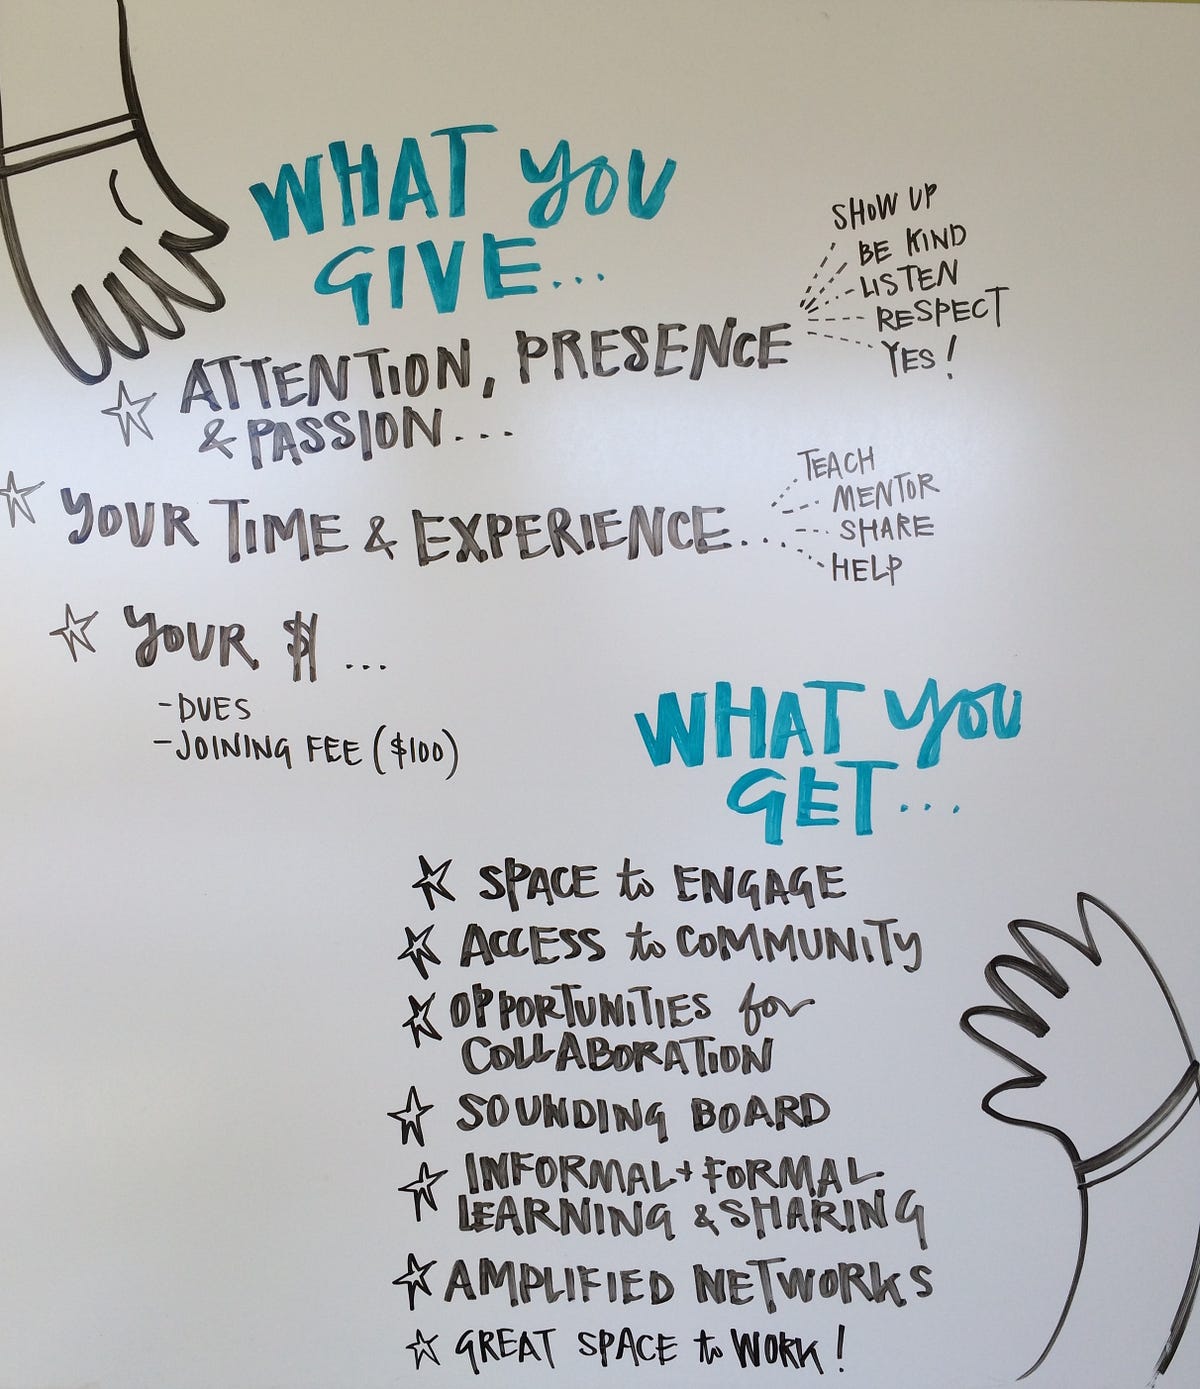 WHAT YOU
GIVE...
ATTENTION, PRESENCE
& PASSION...
SHOW UP
BE KIND
LISTEN
RESPECT
YES!
YOUR TIME & EXPERIENCE...
TEACH
MENTOR
SHARE
HELP
YOUR $ ...
- DUES
- JOINING FEE ($100)
WHAT YOU
GET...
SPACE to ENGAGE
ACCESS to COMMUNITY
OPPORTUNITIES for
COLLABORATION
SOUNDING BOARD
INFORMAL + FORMAL
LEARNING & SHARING
AMPLIFIED NETWORKS
GREAT SPACE to WORK!